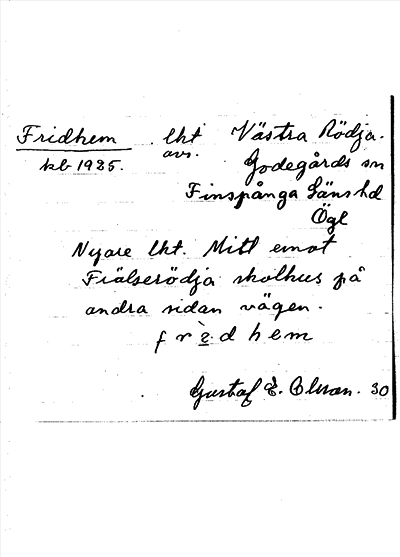 Fridhem lht Västra Rödja.
avs.
kb 1925. Godegårds sn
Finspånga läns hd
Ögl
Nyare lht. Mitt emot
Frälserödja skolhus på
andra sidan vägen.
f r ì d h e m
Gustaf E. Olsson. 30